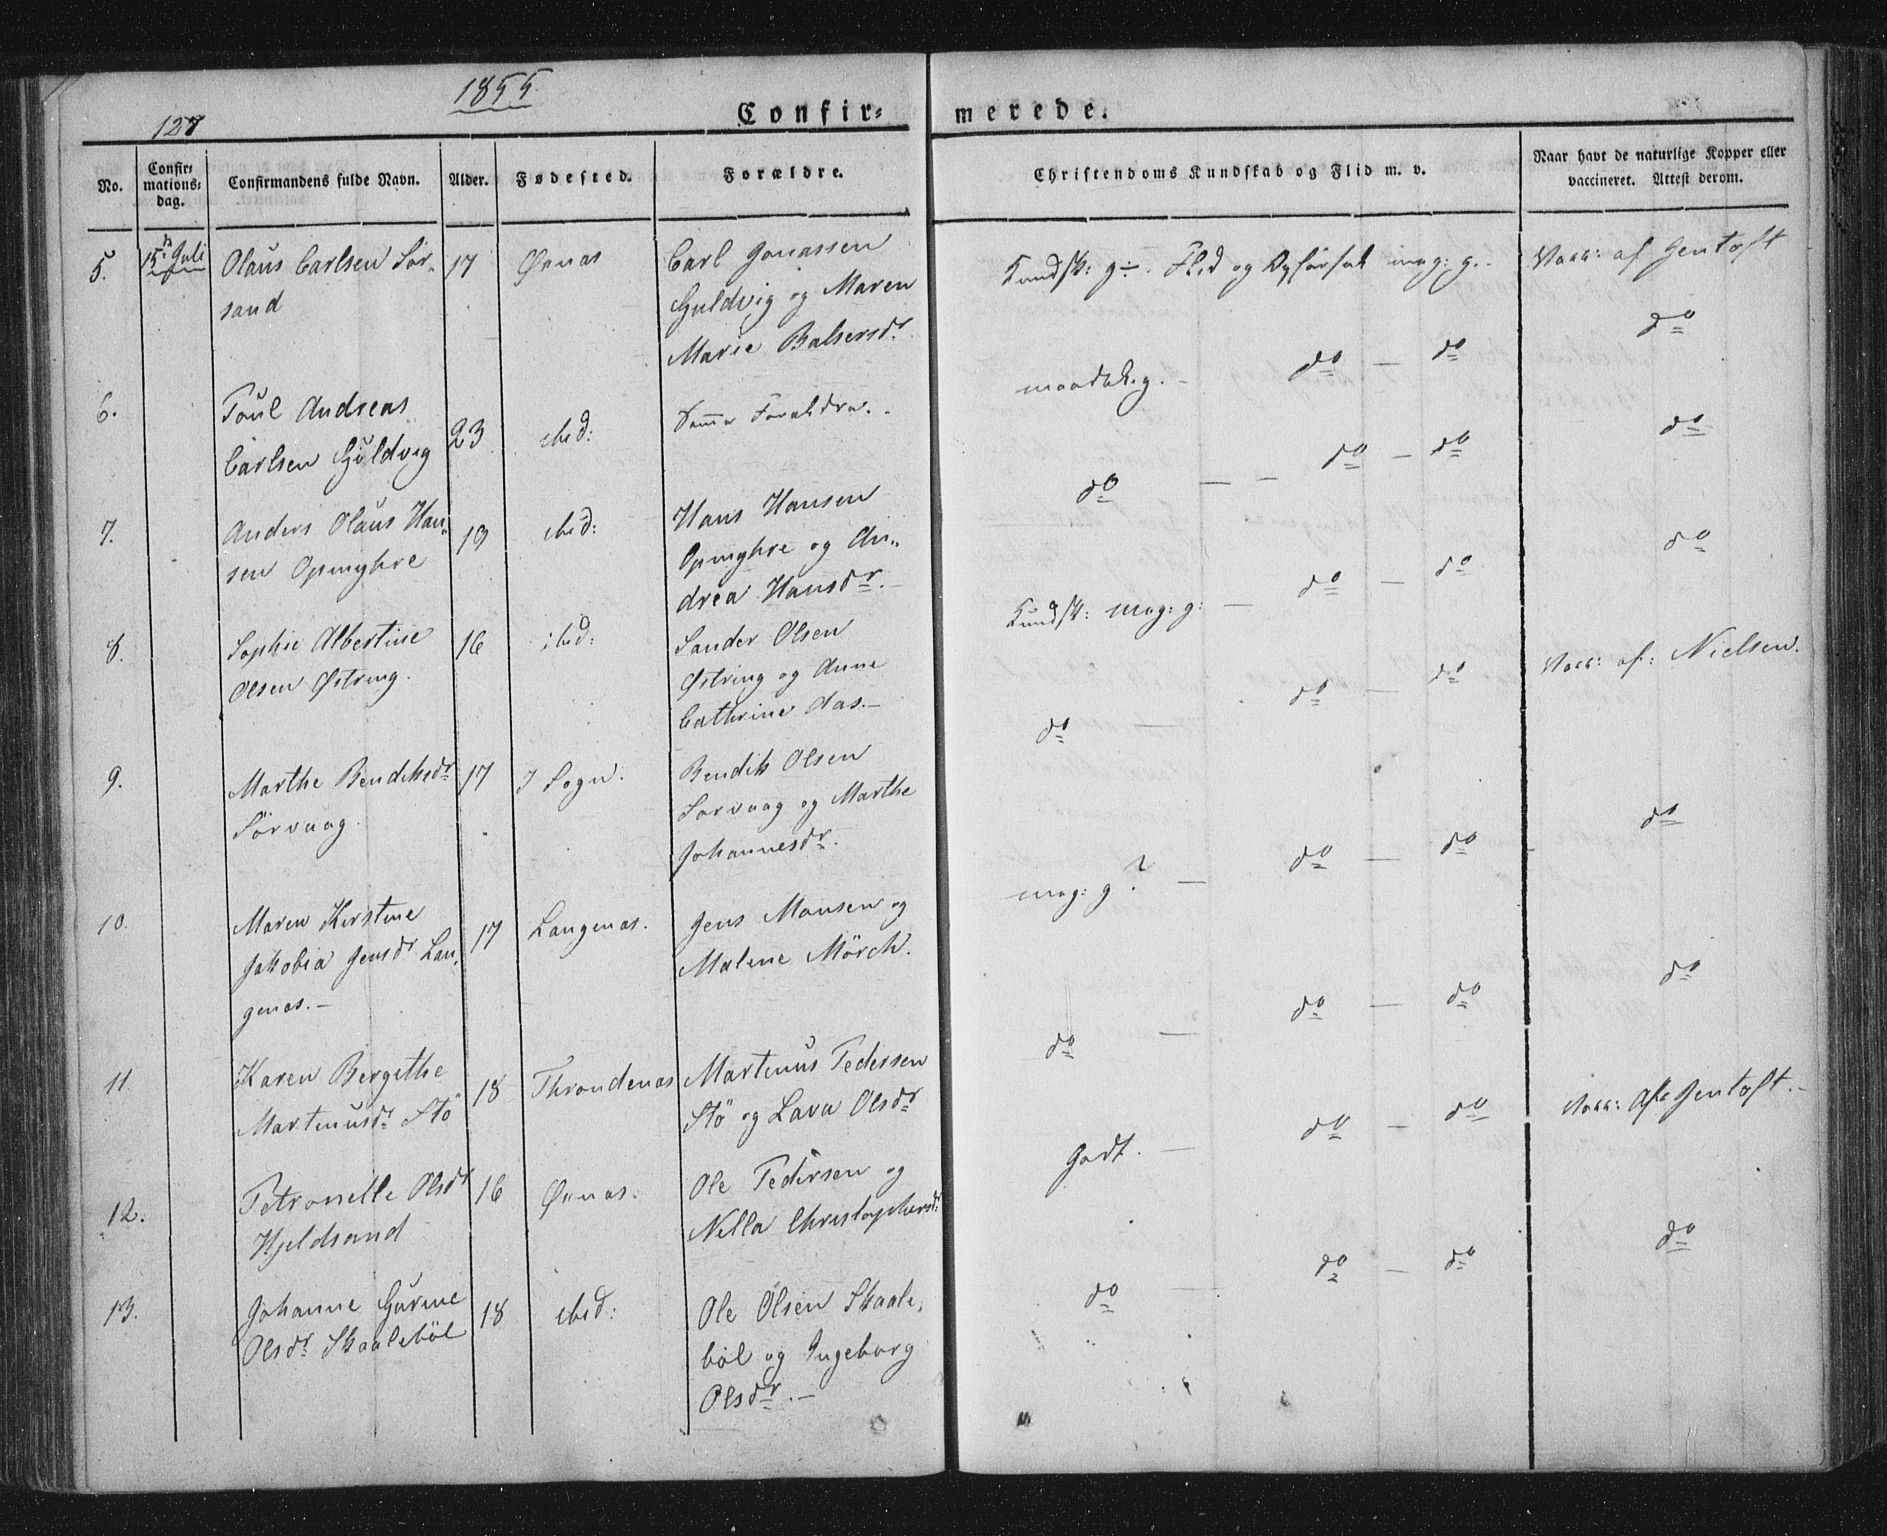 1855
127
Confir- merede.
No.
Confir-
mations-
dag.
Confirmandens fulde Navn.
Alder.
Fødested.
Forældre.
Christendoms Kundskab og Flid m. v.
Naar havt de naturlige Kopper eller
vaccineret. Attest derom.
5.
15de Juli
Olaus Carlsen Sör-
sand
17
Øxnas
Carl Jonassen
Guldvig og Maren
Marie Balsersdr.
Kundsk: g÷. Flid og Opførsel mag: g.
Vacc: af Gentoft
6.
Poul Andreas
Carlsen Guldvig
23
ibid:
Samme Forældre.
maadel. g. —
do — do
do
7.
Anders Olaus Han-
sen Opmyhre
19
ibid:
Hans Hansen
Opmyhre og An-
drea Hansdr. —
do — —
do — do
do
8.
Sophie Albertine
Olsen Østring.
16
ibid:
Sander Olsen
Østring og Anne
Cathrine das. —
Kundsk: mag: g: —
do — do
do
9.
Marthe Bendiksdr
Sörvaag
17
I Sogn.
Bendik Olsen
Sorvaag og Marthe
Johannesdr.
do —
do — do
Vacc: af: Nielsen.
10.
Maren Kirstine
Jakobia Jensdr Lan-
genas. —
17
Langenas.
Jens Monsen og
Malene Mörch.
mag: g? —
do — do
do
11.
Karen Bergithe
Martinusdr Stö
18
Throndenas
Martinus Pedersen
Stö og Lava Olsdr
do —
do — do
do
12.
Petronelle Olsdr
Kjeldsand
16
Øxnas.
Ole Pedersen og
Nella Christophersdr
Godt. —
do — do
Vacc: af Gentoft. —
13.
Johanne Gurine
Olsdr Skaaleböl
18
ibid:
Ole Olsen Skaale-
böl og Ingeborg
Olsdr. —
do —
do — do
do